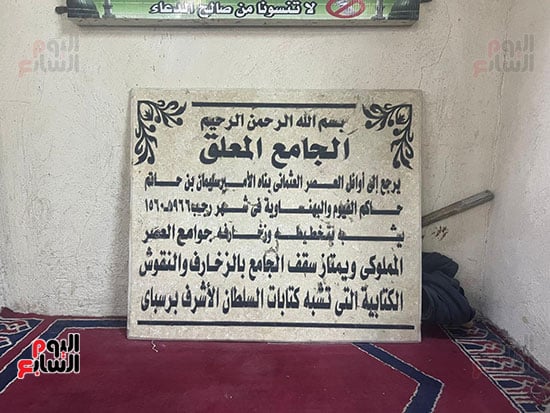 لا تنسونا من صالح الدعاء
اليوم السابع
بسم الله الرحمن الرحيم
الجامع المعلق
يرجع إلى أوائل العصر العثمانى بناه الأمير سليمان بن حاتم
حاكم الفيوم والبهنساوية فى شهر رجب ٩٦٦هـ ١٥٦٠
يشبه تخطيطه وزخارفه جوامع العصر
المملوكى ويمتاز سقف الجامع بالزخارف والنقوش
الكتابية التى تشبه كتابات السلطان الأشرف برسباى
اليوم السابع